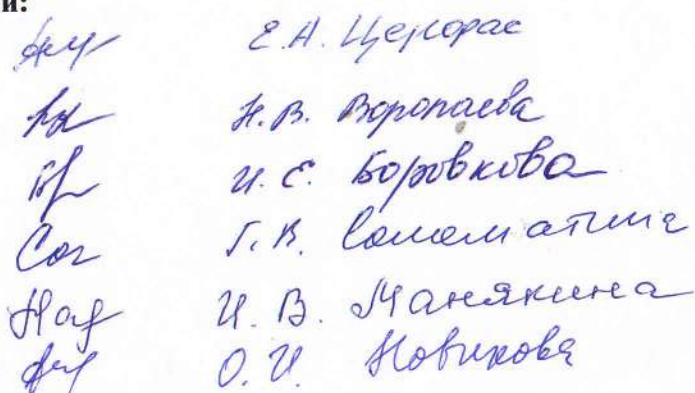 и:
Е.А.
Н.В. Воропаева
И.С. Боровкова
Сог Г.В. Соломатина
И.В. Манякина
О.И. Новикова